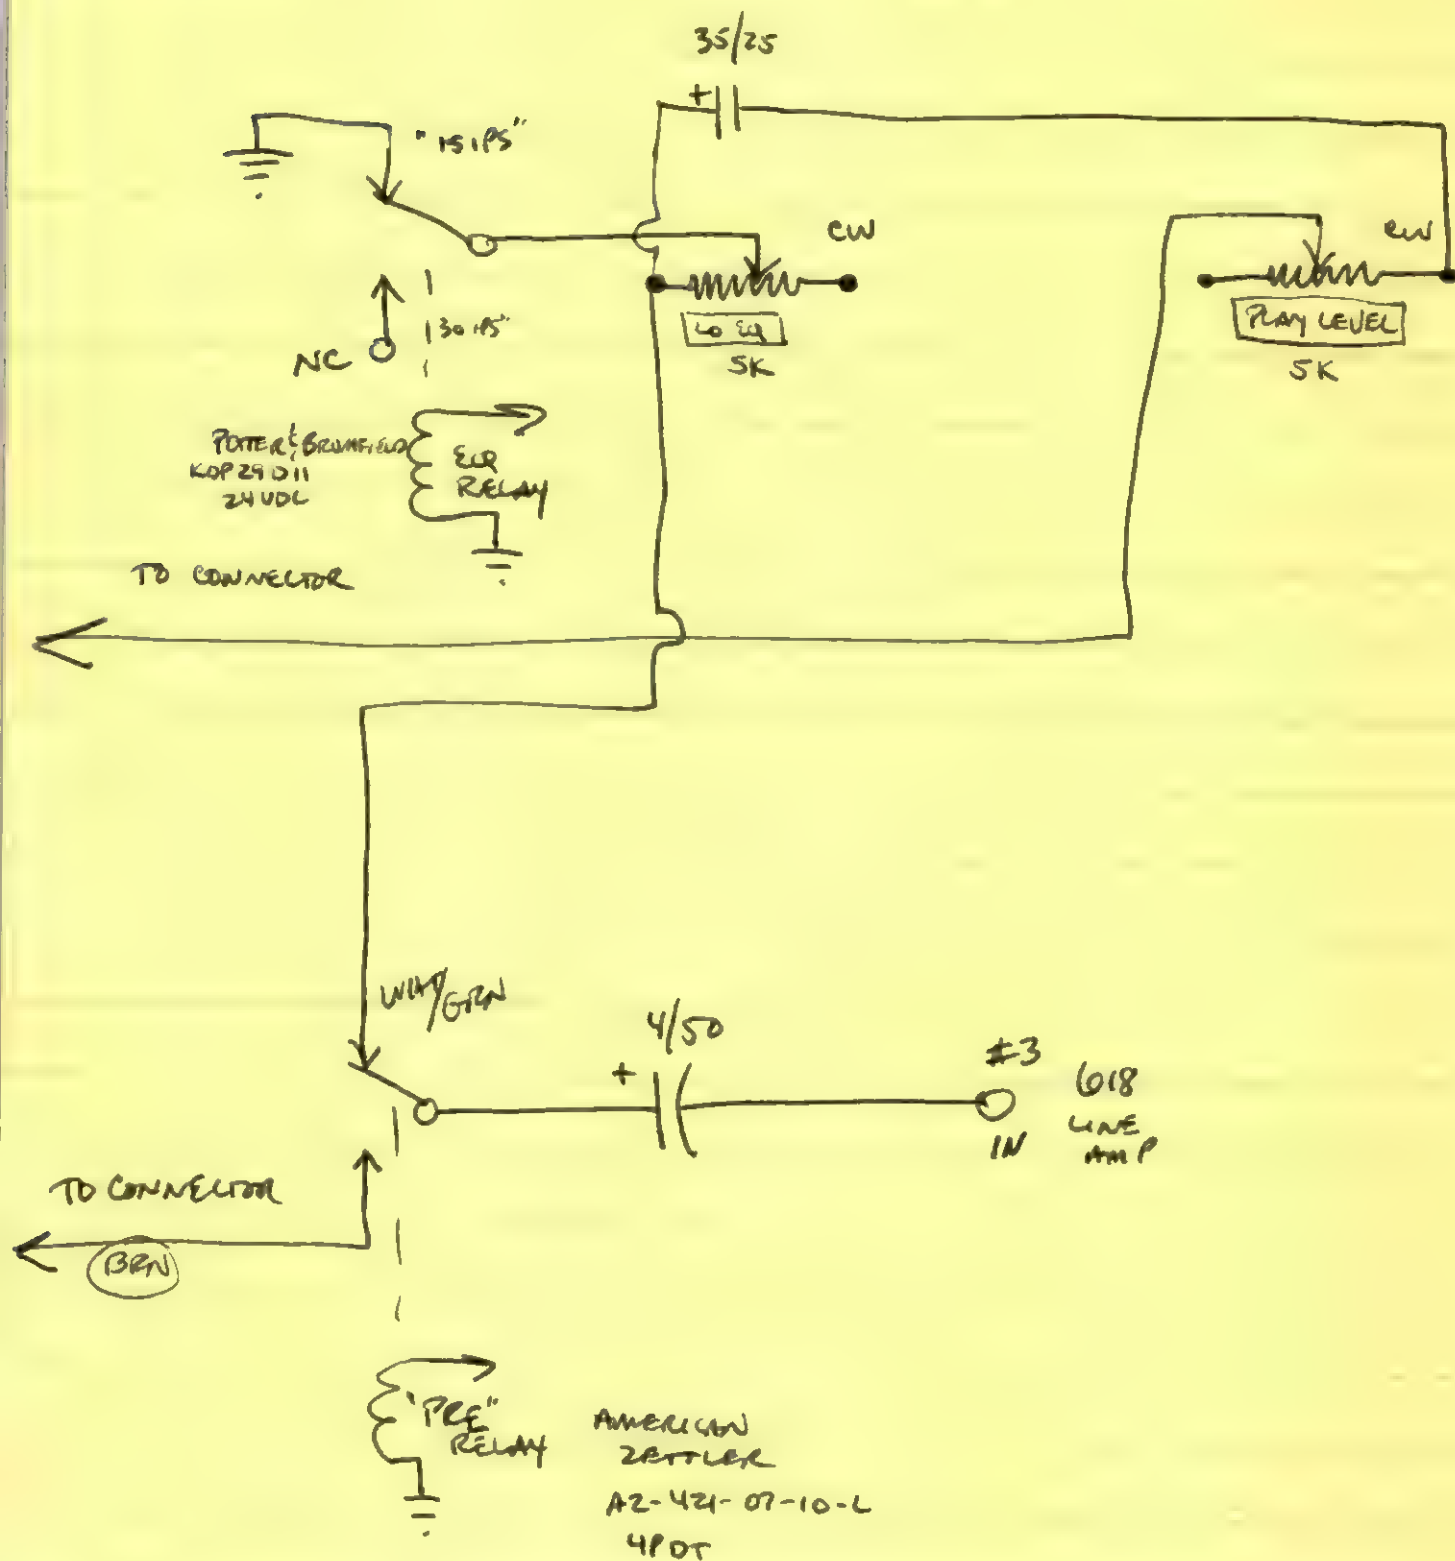 35/25
+
"15 IPS"
CW
CW
LO EQ
5K
PLAY LEVEL
5K
NC
30 IPS"
POTTER & BRUMFIELD
KOP29D11
24VDC
EQ
RELAY
TO CONNECTOR
WHT/GRN
4/50
+
#3
IN
618
LINE
AMP
TO CONNECTOR
BRN
"PRE"
RELAY
AMERICAN
ZETTLER
AZ-421-07-10-L
4PDT